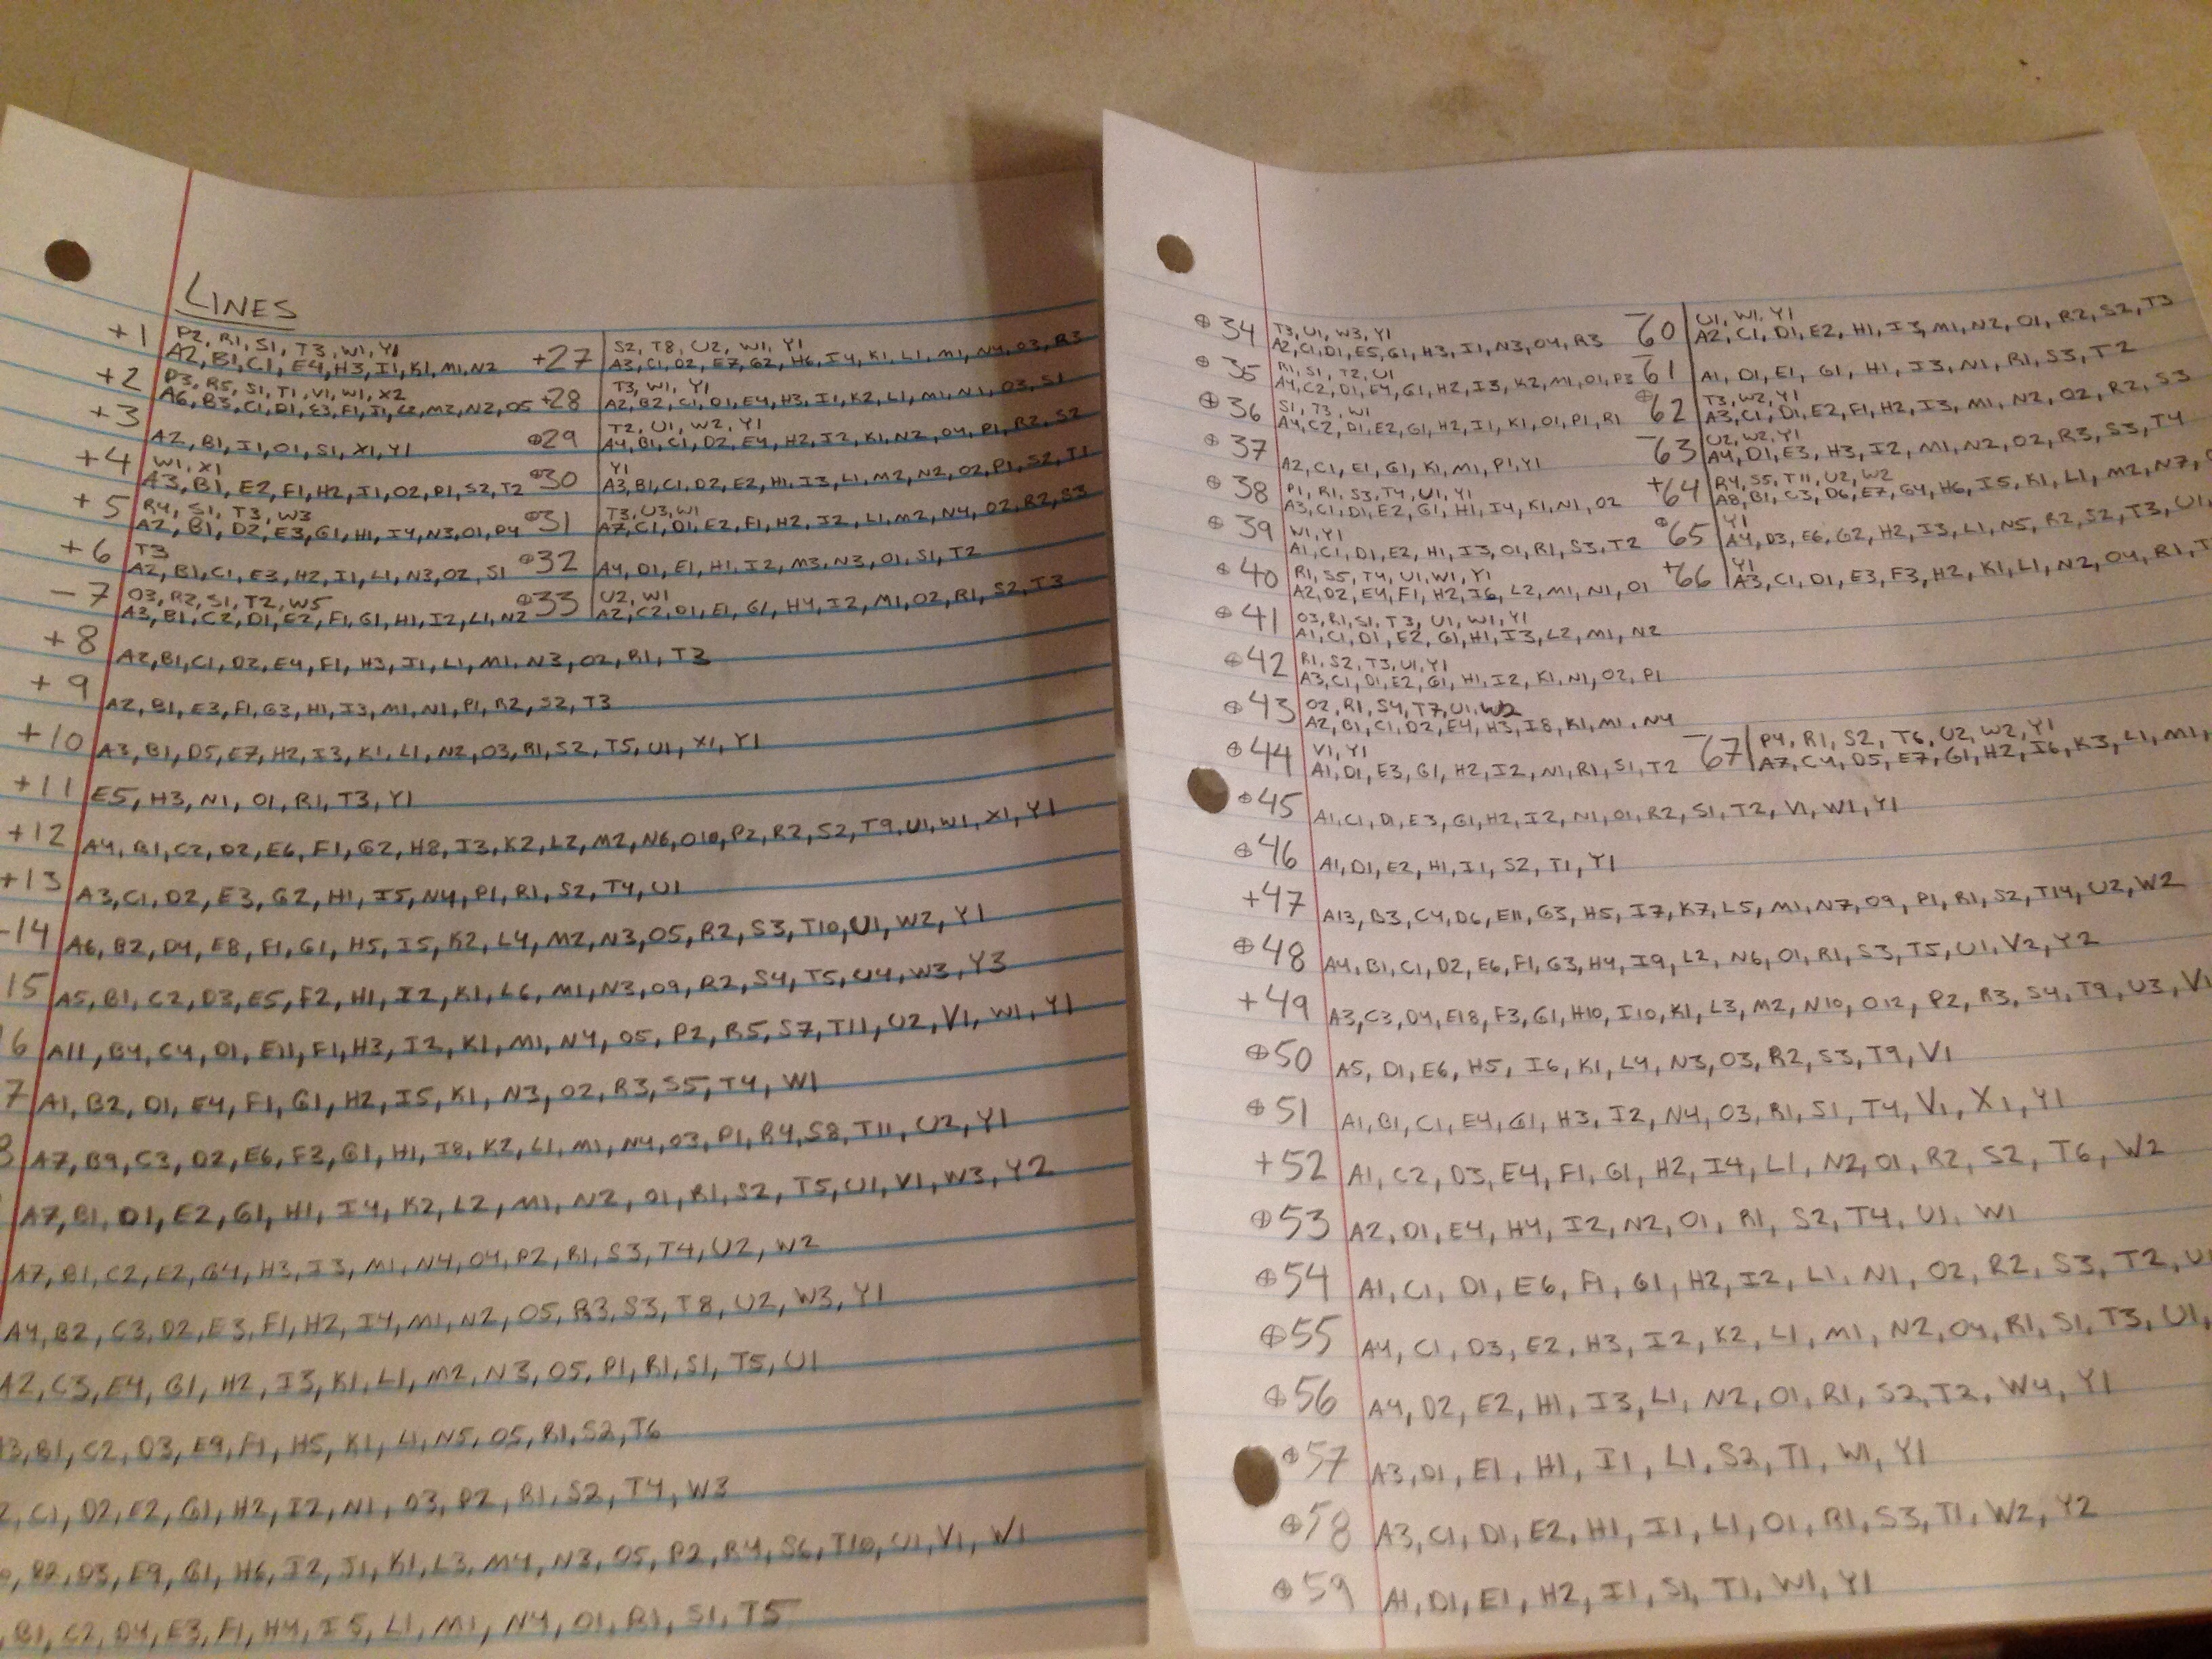 LINES
+1 P2, R1, S1, T3, W1, Y1
A2, B1, C1, E4, H3, I1, K1, M1, N2
+2 D3, R5, S1, T1, V1, W1, X2
A6, B3, C1, D1, E3, F1, I1, L2, M2, N2, O5
+3 A2, B1, I1, O1, S1, X1, Y1
+4 W1, X1
A3, B1, E2, F1, H2, I1, O2, P1, S2, T2
+5 R4, S1, T3, W3
A2, B1, D2, E3, G1, H1, I4, N3, O1, P4
+6 T3
A2, B1, C1, E3, H2, I1, L1, N3, O2, S1
-7 O3, R2, S1, T2, W5
A3, B1, C2, D1, E2, F1, G1, H1, I2, L1, N2
+8 A2, B1, C1, D2, E4, F1, H3, I1, L1, M1, N3, O2, R1, T3
+9 A2, B1, E3, F1, G3, H1, I3, M1, N1, P1, R2, S2, T3
+10 A3, B1, D5, E7, H2, I3, K1, L1, N2, O3, R1, S2, T5, U1, X1, Y1
+11 E5, H3, N1, O1, R1, T3, Y1
+12 A4, B1, C2, D2, E6, F1, G2, H8, I3, K2, L2, M2, N6, O10, P2, R2, S2, T9, U1, W1, X1, Y1
+13 A3, C1, D2, E3, G2, H1, I5, N4, P1, R1, S2, T4, U1
-14 A6, B2, D4, E8, F1, G1, H5, I5, K2, L4, M2, N3, O5, R2, S3, T10, U1, W2, Y1
15 A5, B1, C2, D3, E5, F2, H1, I2, K1, L6, M1, N3, O9, R2, S4, T5, U4, W3, Y3
6 A11, B4, C4, D1, E11, F1, H3, I2, K1, M1, N4, O5, P2, R5, S7, T11, U2, V1, W1, Y1
7 A1, B2, D1, E4, F1, G1, H2, I5, K1, N3, O2, R3, S5, T4, W1
8 A7, B9, C3, D2, E6, F2, G1, H1, I8, K2, L1, M1, N4, O3, P1, R4, S8, T11, U2, Y1
A7, B1, D1, E2, G1, H1, I4, K2, L2, M1, N2, O1, R1, S2, T5, U1, V1, W3, Y2
A7, B1, C2, E2, G4, H3, I3, M1, N4, O4, P2, R1, S3, T4, U2, W2
A4, B2, C3, D2, E3, F1, H2, I4, M1, N2, O5, R3, S3, T8, U2, W3, Y1
A2, C3, E4, G1, H2, I3, K1, L1, M2, N3, O5, P1, R1, S1, T5, U1
3, B1, C2, D3, E9, F1, H5, K1, L1, N5, O5, R1, S2, T6
2, C1, D2, E2, G1, H2, I2, N1, O3, P2, R1, S2, T4, W3
, B2, D3, E9, G1, H6, I2, J1, K1, L3, M4, N3, O5, P2, R4, S6, T10, U1, V1, W1
, B1, C2, D4, E3, F1, H4, I5, L1, M1, N4, O1, R1, S1, T5
+27 S2, T8, U2, W1, Y1
A3, C1, D2, E7, G2, H6, I4, K1, L1, M1, N4, O3, R3
+28 T3, W1, Y1
A2, B2, C1, D1, E4, H3, I1, K2, L1, M1, N1, O3, S1
⊕29 T2, U1, W2, Y1
A4, B1, C1, D2, E4, H2, I2, K1, N2, O4, P1, R2, S2
⊕30 Y1
A3, B1, C1, D2, E2, H1, I3, L1, M2, N2, O2, P1, S2, T1
⊕31 T3, U3, W1
A7, C1, D1, E2, F1, H2, I2, L1, M2, N4, O2, R2, S3
⊕32 A4, D1, E1, H1, I2, M3, N3, O1, S1, T2
⊕33 U2, W1
A2, C2, D1, E1, G1, H4, I2, M1, O2, R1, S2, T3
⊕34 T3, U1, W3, Y1
A2, C1, D1, E5, G1, H3, I1, N3, O4, R3
⊕35 R1, S1, T2, U1
A4, C2, D1, E4, G1, H2, I3, K2, M1, O1, P3
⊕36 S1, T3, W1
A4, C2, D1, E2, G1, H2, I1, K1, O1, P1, R1
⊕37 A2, C1, E1, G1, K1, M1, P1, Y1
⊕38 P1, R1, S3, T4, U1, Y1
A3, C1, D1, E2, G1, H1, I4, K1, N1, O2
⊕39 W1, Y1
A1, C1, D1, E2, H1, I3, O1, R1, S3, T2
⊕40 R1, S5, T4, U1, W1, Y1
A2, D2, E4, F1, H2, I6, L2, M1, N1, O1
⊕41 O3, R1, S1, T3, U1, W1, Y1
A1, C1, D1, E2, G1, H1, I3, L2, M1, N2
⊕42 R1, S2, T3, U1, Y1
A3, C1, D1, E2, G1, H1, I2, K1, N1, O2, P1
⊕43 O2, R1, S4, T7, U1, W2
A2, B1, C1, D2, E4, H3, I8, K1, M1, N4
⊕44 V1, Y1
A1, D1, E3, G1, H2, I2, N1, R1, S1, T2
⊕45 A1, C1, D1, E3, G1, H2, I2, N1, O1, R2, S1, T2, V1, W1, Y1
⊕46 A1, D1, E2, H1, I1, S2, T1, Y1
+47 A13, B3, C4, D6, E11, G3, H5, I7, K7, L5, M1, N7, O9, P1, R1, S2, T14, U2, W2
⊕48 A4, B1, C1, D2, E6, F1, G3, H4, I9, L2, N6, O1, R1, S3, T5, U1, V2, Y2
+49 A3, C3, D4, E18, F3, G1, H10, I10, K1, L3, M2, N10, O12, P2, R3, S4, T9, U3, V1
⊕50 A5, D1, E6, H5, I6, K1, L4, N3, O3, R2, S3, T9, V1
⊕51 A1, B1, C1, E4, G1, H3, I2, N4, O3, R1, S1, T4, V1, X1, Y1
+52 A1, C2, D3, E4, F1, G1, H2, I4, L1, N2, O1, R2, S2, T6, W2
⊕53 A2, D1, E4, H4, I2, N2, O1, R1, S2, T4, U1, W1
⊕54 A1, C1, D1, E6, F1, G1, H2, I2, L1, N1, O2, R2, S3, T2, U1
⊕55 A4, C1, D3, E2, H3, I2, K2, L1, M1, N2, O4, R1, S1, T3, U1,
⊕56 A4, D2, E2, H1, I3, L1, N2, O1, R1, S2, T2, W4, Y1
⊕57 A3, D1, E1, H1, I1, L1, S2, T1, W1, Y1
⊕58 A3, C1, D1, E2, H1, I1, L1, O1, R1, S3, T1, W2, Y2
⊕59 A1, D1, E1, H2, I1, S1, T1, W1, Y1
-60 U1, W1, Y1
A2, C1, D1, E2, H1, I3, M1, N2, O1, R2, S2, T3
-61 A1, D1, E1, G1, H1, I3, N1, R1, S3, T2
⊕62 T3, W2, Y1
A3, C1, D1, E2, F1, H2, I3, M1, N2, O2, R2, S3
-63 U2, W2, Y1
A4, D1, E3, H3, I2, M1, N2, O2, R3, S3, T4
+64 R4, S5, T11, U2, W2
A8, B1, C3, D6, E7, G4, H6, I5, K1, L1, M2, N7,
⊕65 Y1
A4, D3, E6, G2, H2, I3, L1, N5, R2, S2, T3, U1,
+66 Y1
A3, C1, D1, E3, F3, H2, K1, L1, N2, O4, R1,
-67 P4, R1, S2, T6, U2, W2, Y1
A7, C4, D5, E7, G1, H2, I6, K3, L1, M1,